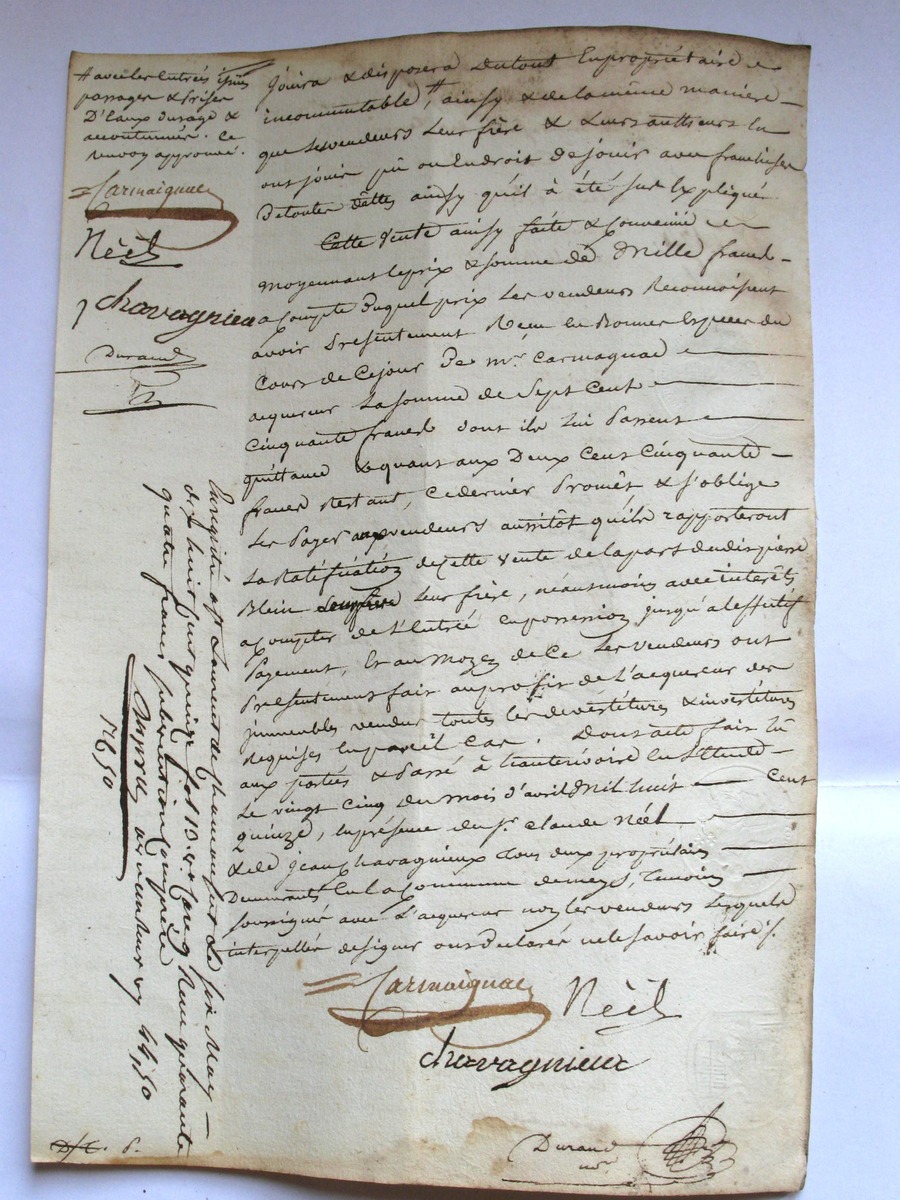 # avec les entrées issues
passages & prises
D'eaux dusage &
accoutumés. ce
renvoy approuvé.
Carmaignac
Néël
chavagnieux
Durand
jouira & disposera dutout en propriétaire
incommutable, # ainsy & de la même maniere
que les vendeurs Leur frère & Leurs autheurs en
ont joüir pû ou eu droit De joüir avec franchise
De toutes dettes ainsy qu'il à été sus Expliqué
Cette vente ainsy faite & Convenüe
moyennant le prix & somme de Mille francs
a Compte Duquel prix Les vendeurs Reconnoissent
avoir Présentement Reçu en Bonnes Espèces du
Cours de Cejour De mr. Carmagnac
acquereur La somme de Sept Cent
Cinquante francs dont ils lui Passent
quittance & quant aux Deux Cent Cinquante
francs Restant, ce dernier Promêt & s'oblige
Les Payer aux vendeurs aussitôt qu'ils rapporteront
La Ratification de Cette vente de la part dudit pierre
Blein Leur frère, néanmoins avec interêts
a Compter de L'Entrée en possession jusqu'a L'effectif
Payement, Et au moyen de Ce Les vendeurs ont
Présentement fait au profit de L'acquereur des
immeubles vendus toutes les devestitures & investitures
Requises En pareil Cas. Dont acte fait Lû
aux parties & Passé à hauterivoire En L'Etude
Le vingt cinq du mois d'avril Mil huit Cent
quinze, En présence du Sr. Claude Néël
& de jean Chavagnieux tous deux propriétaires
Demeurants En La Commune de meys, témoins
soussignés avec L'acquereur non les vendeurs Lesquels
interpellés de signer ont Déclaré ne le savoir faire
Carmaignac Néël
chavagnieux
Durand
nore
Enregistré à St Laurent de chamousset Le six May
dix huit cent quinze fol 13 Reçu quarante
quatre francs subvention comprise
44,50